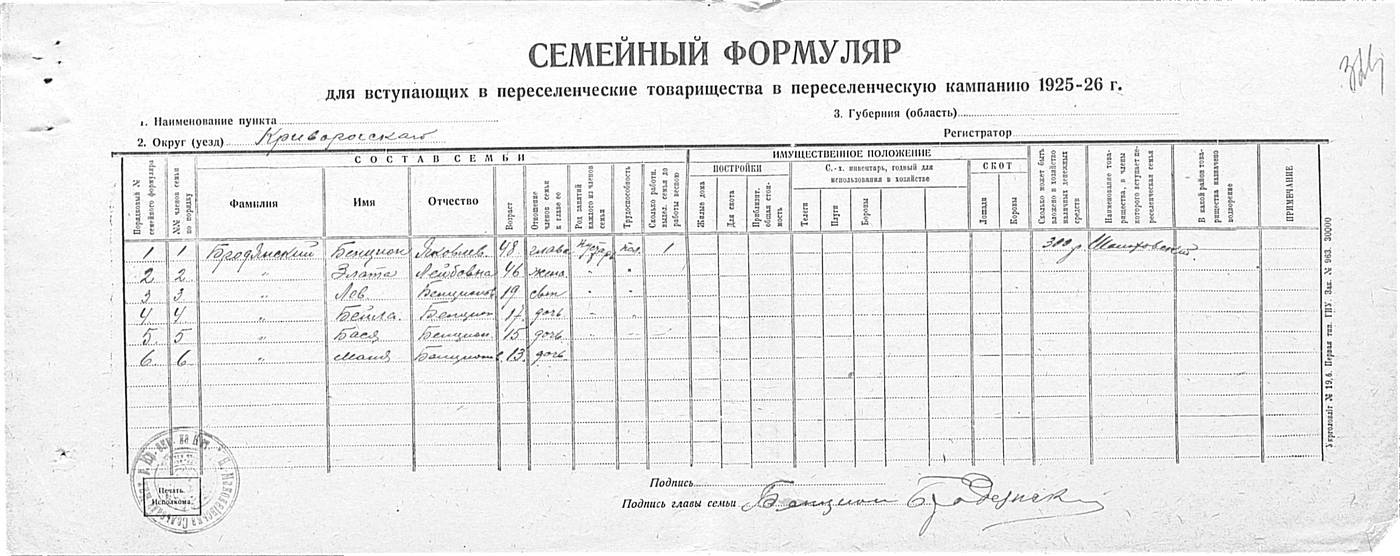 СЕМЕЙНЫЙ ФОРМУЛЯР
для вступающих в переселенческие товарищества в переселенческую кампанию 1925-26 г.
1. Наименование пункта
3. Губерния (область)
2. Округ (уезд) Криворожскаго
Регистратор
СОСТАВ СЕМЬИ
ИМУЩЕСТВЕННОЕ ПОЛОЖЕНИЕ
Порядковый № семейного формуляра
№№ членов семьи по порядку
Фамилия
Имя
Отчество
Возраст
Отношение членов семьи к главе ее
Род занятий каждого из членов семьи
Трудоспособность
Сколько работн. выдел. семья до работы весною
ПОСТРОЙКИ
Жилые дома
Для скота
Приблизит. общая стоимость
С.-х. инвентарь, годный для использования в хозяйстве
Телеги
Плуги
Бороны
СКОТ
Лошади
Коровы
Сколько может быть вложено в хозяйство наличных денежных средств
Наименование товарищества, в члены которого вступает переселенческая семья
В какой район товарищества назначено водворение
ПРИМЕЧАНИЕ
1 1 Бродянский Бенцион Яковлев. 48 глава 1 300 р
2 2 " Злата Лейбовна 46 жена " "
3 3 " Лев Бенционов 19 сын " "
4 4 " Бейла Бенцион 17 дочь " "
5 5 " Бася Бенцион. 15 дочь
6 6 " Маня Бенционов. 13 дочь
Печать Исполкома.
Подпись
Подпись главы семьи Бенцион
Укрголовліт № 19,6. Первая тип. ГПУ. Зак. № 963. 30000